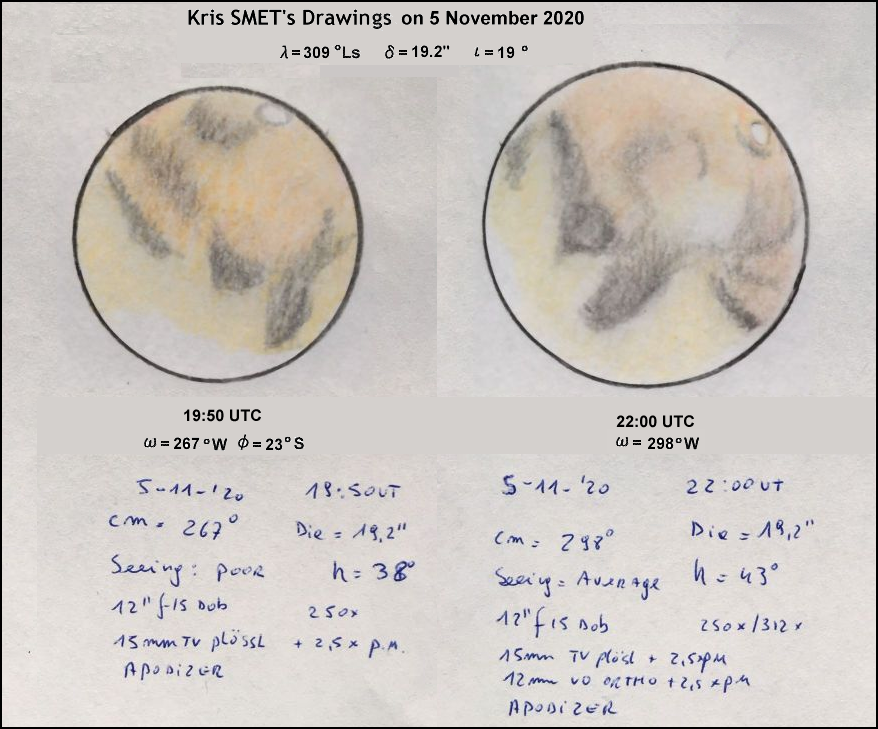 Kris SMET's Drawings on 5 November 2020
λ = 309 °Ls δ = 19.2" ι = 19 °
19:50 UTC
ω = 267 °W ϕ = 23° S
22:00 UTC
ω = 298°W
5-11-'20 19:50UT
cm = 267° Dia = 19,2"
Seeing: POOR h = 38°
12" f-15 Dob 250x
15mm TV plössl + 2,5x P.M.
APODIZER
5-11-'20 22:00UT
cm = 298° Dia = 19,2"
Seeing = AVERAGE h = 43°
12" f 15 Dob 250x/312x
15mm TV plösl + 2,5xPM
12mm VO ORTHO + 2,5xPM
APODIZER